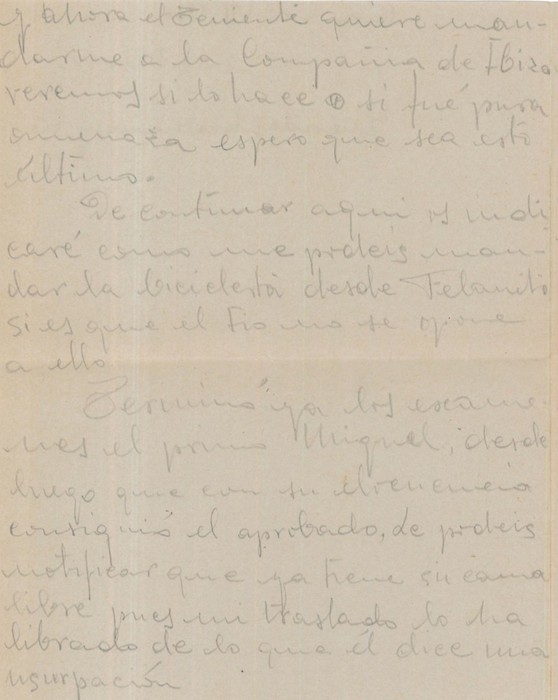 y ahora el Teniente quiere man-
darme a la Compañia de Ibiza
veremos si lo hace o si fué pura
amenaza espero que sea esto
último.
De continuar aqui os indi
caré como me podeis man-
dar la bicicleta desde Felanitx
si es que el tio no se opone
a ello
Terminó ya los exame-
nes el primo Miguel, desde
luego que con su elocuencia
consiguió el aprobado, le podeis
notificar que ya tiene su cama
libre pues mi traslado lo ha
librado de lo que él dice una
usurpación